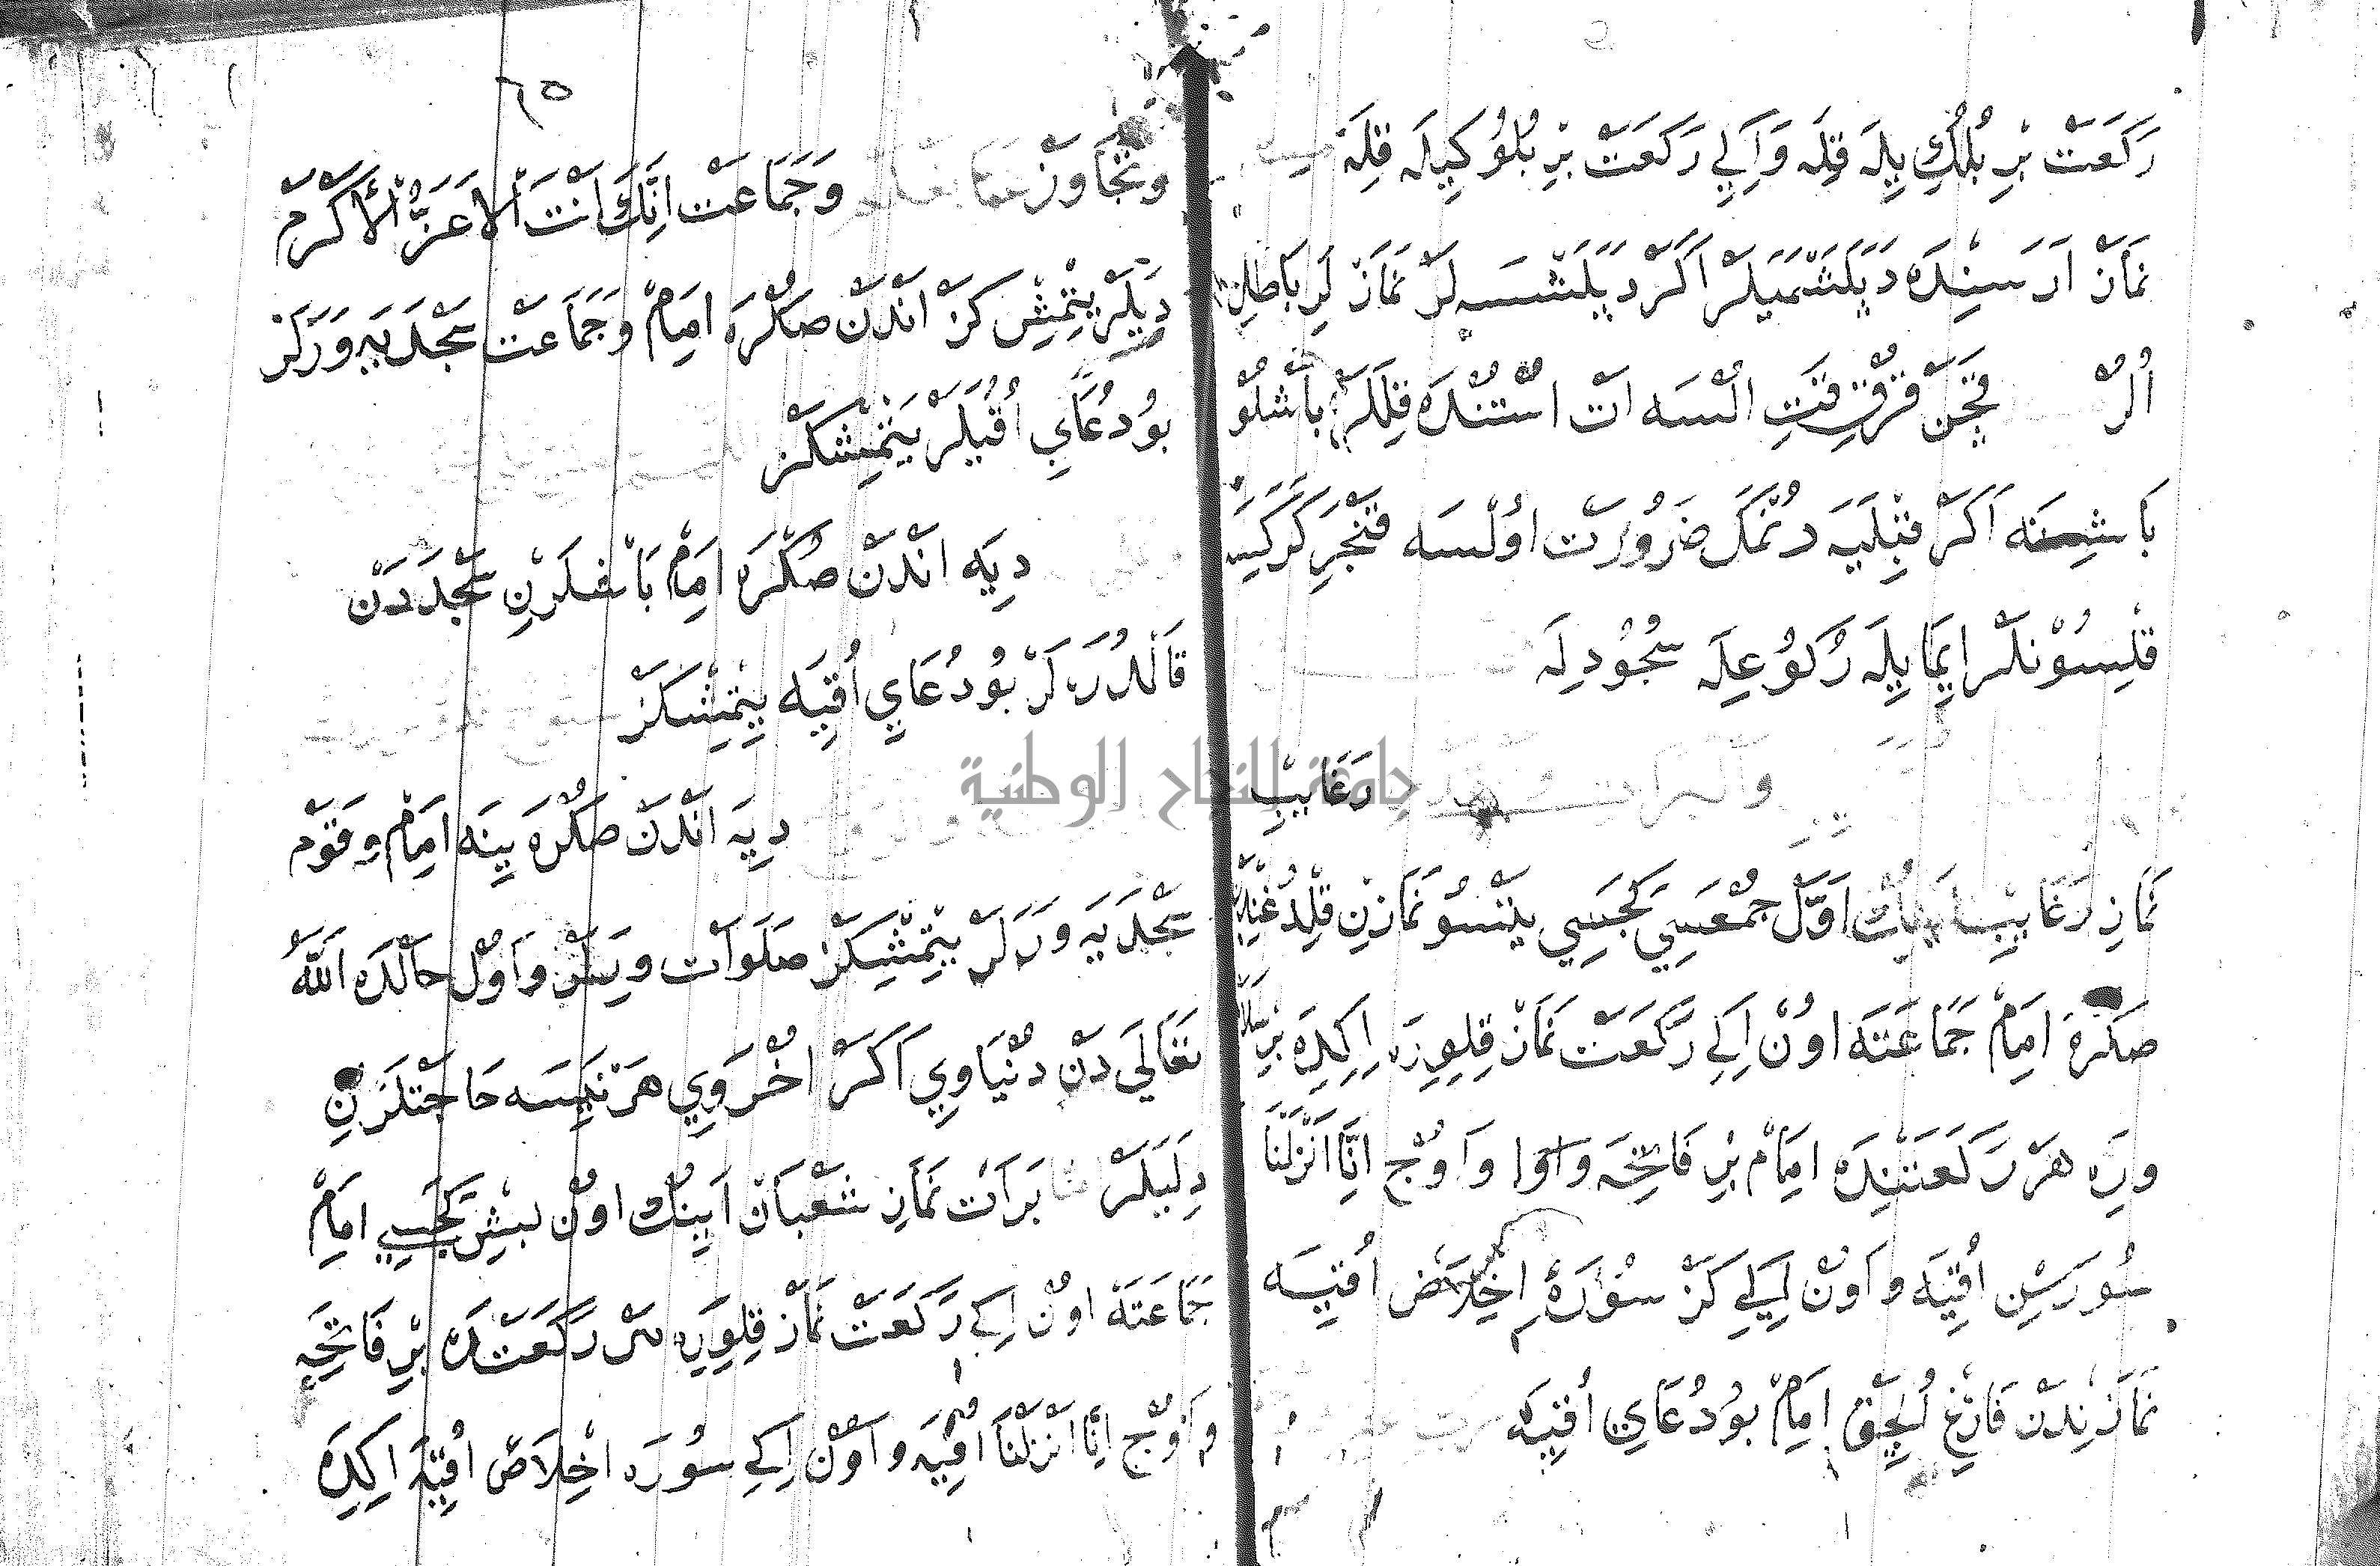 رَكَعَتْ بِرْ بُلُكِ بِلَه قِلَه وَاِكِي رَكَعَتْ بِرْ بُلُوكِيلَه قِلَه
نَمَازْ اَرَسِنْدَه دَپَلَشْمَيَلَرْ اَكَرْ دَپَلَشْسَه لَرْ نَمَازْ لَرِ بَاطِلْ
اُلُرْ قَچَنْ قُرْقُو قَتِ اُلْسَه اَتْ اُسْتُنْدَه قِلَلَرْ بَاشْلُو
بَاشِنَه اَكَرْ قِبْلَيَه دُنْمَكْ ضَرُورَتْ اُولْسَه قَنْجَرُ كَرَكْسَه
قِلْسُونْلَرْ اِيمَا بِلَه رُكُوعِلَه سُجُودِلَه
رَغَايِبْ
نَمَازِ رَغَايِبْ اَوَّلْ جُمْعَسِي كَجَسِي يَتْسُو نَمَازِنِ قِلْدُغِنْدَنْ
صَكْرَه اِمَامْ جَمَاعَتَه اُونْ اِكِي رَكَعَتْ نَمَازْ قِلِوِرَه اِكِدَه بِرْ سَلَامْ
وِرَه هَرْ رَكَعَتِنْدَه اِمَامْ بِرْ فَاتِحَه وَاُوچْ اِنَّا اَنْزَلْنَا
سُورَسِنْ اُقِيَه وَاُونْ اِكِي كَزْ سُورَهٔ اِخْلَاصْ اُقِيَه
نَمَازْنِدَنْ فَارِغْ اُلِجَقْ اِمَامْ بُودُعَايِ اُقِيَه
٦٥
وَتَجَاوَزْ عَمَّا تَعْلَمْ وَجَمَاعَتْ اِنَّكَ اَنْتَ الْاَعَزُّ الْاَكْرَمْ
دِيَلَرْ يِتْمِشْ كَزْ اَنْدَنْ صَكْرَه اِمَامْ وَجَمَاعَتْ سَجْدَيَه وَرَلَرْ
بُودُعَايِ اُقُيَلَرْ يَتْمِشْكَزْ
دِيَه اَنْدَنْ صُكْرَه اِمَامْ بَاشْلَرِنِ سَجْدَدَنْ
قَالْدُرَه لَرْ بُودُعَايِ اُقِيَه يِتْمِشْكَزْ
دِيَه اَنْدَنْ صَكْرَه يِنَه اِمَامْ وَقَوْمْ
سَجْدَيَه وَرَلَرْ يِتْمِشْكَزْ صَلَوَاتْ وِيَرَلَرْ وَاُولْ حَالْدَه اَللّٰهُ
تَعَالَى دَنْ دُنْيَاوِي اَكَرْ اُخْرَوِي هَرْنَيِسَه حَاجَتْلَرِنِ
دِلَيَلَرْ بَرَاتْ نَمَازِ شَعْبَانْ اَيِنُكْ اُونْ بَشْ كَجَسِي اِمَامْ
جَمَاعَتَه اُونْ اِكِي رَكَعَتْ نَمَازْ قِلِوِرَه هَرْ رَكَعَتْدَه بِرْ فَاتِحَه
وَاُوچْ اِنَّا اَنْزَلْنَا اُقِيَه وَاُونْ اِكِي سُورَه اِخْلَاصْ اُقِيَه اِكِدَه
جامعة النجاح الوطنية